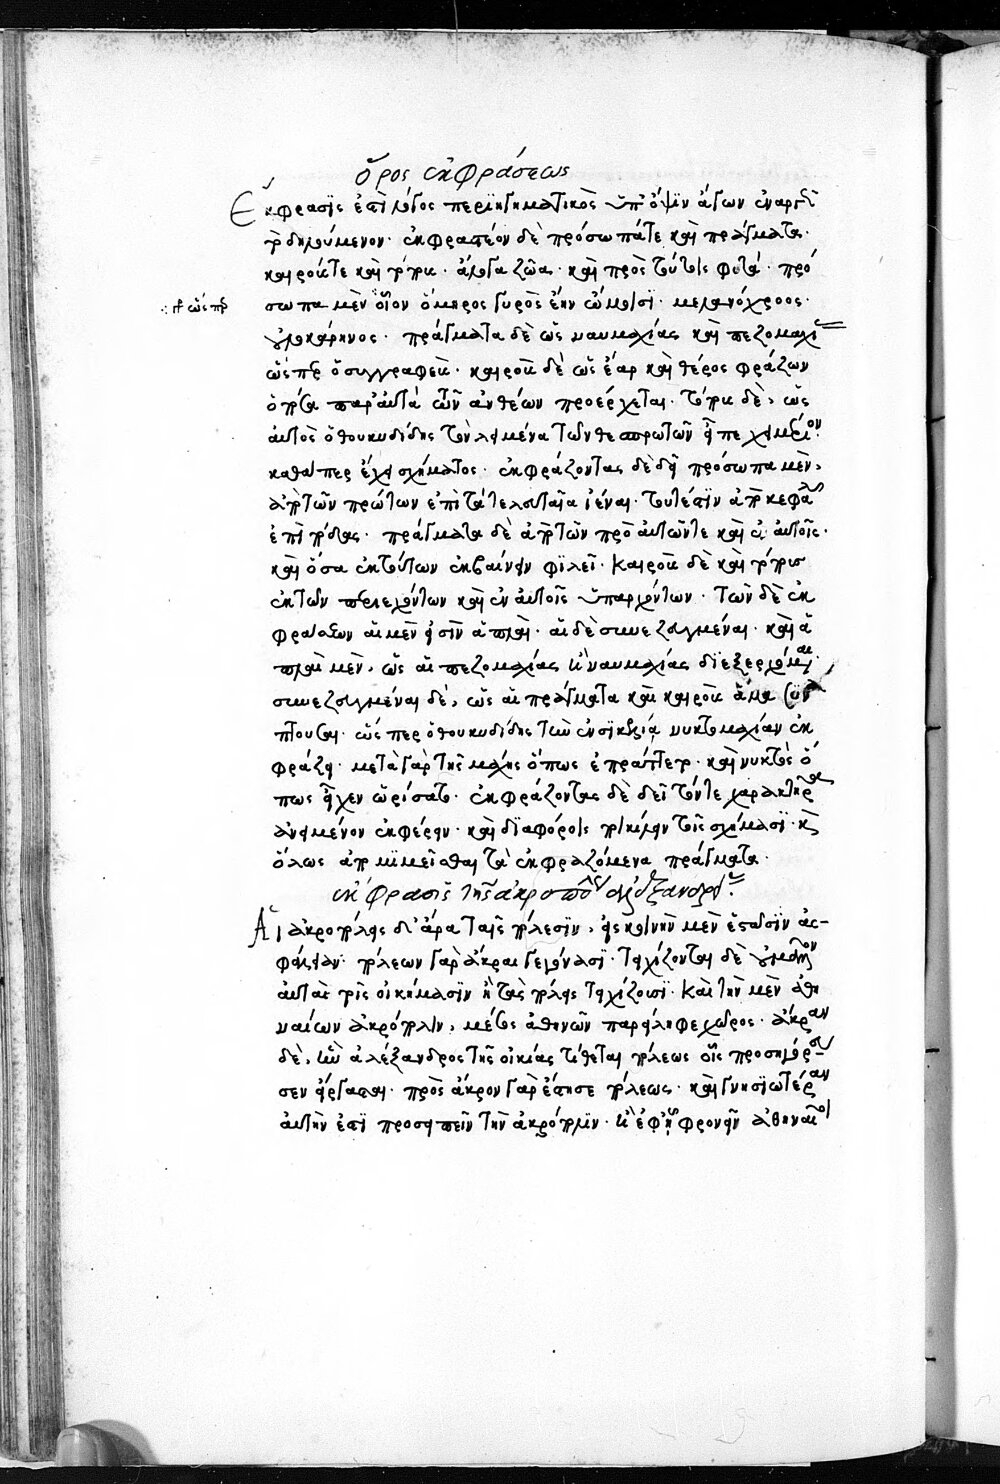 ὅρος ἐκφράσεως
Ἔκφρασίς ἐστι λόγος περιηγηματικὸς ὑπ' ὄψιν ἄγων ἐναργῶς
τὸ δηλούμενον· ἐκφραστέον δὲ πρόσωπά τε καὶ πράγματα·
καιρούς τε καὶ τόπους· ἄλογα ζῶα· καὶ πρὸς τούτοις φυτά· πρό
σωπα μὲν οἷον ὅμηρος γυρὸς ἔην ὤμοισι· μελανόχροος·
οὐλοκάρηνος· πράγματα δὲ ὡς ναυμαχίας καὶ πεζομαχίας
ὥσπερ ὁ συγγραφεύς· καιροὺς δὲ ὡς ἔαρ καὶ θέρος φράζων
ὁπόσα παρ' αὐτὰ τῶν ἀνθέων προέρχεται· τόπους δὲ, ὡς
αὐτὸς ὁ θουκυδίδης τὸν λιμένα τῶν θεσπρωτῶν εἶπε χειμέριον·
καθάπερ ἔχει σχήματος· ἐκφράζοντας δὲ δεῖ πρόσωπα μὲν,
ἀπὸ τῶν πρώτων ἐπὶ τὰ τελευταῖα ἰέναι· τουτέστιν ἀπὸ κεφαλῆς
ἐπὶ πόδας· πράγματα δὲ ἀπὸ τῶν πρὸ αὐτῶν τε καὶ ἐν αὐτοῖς·
καὶ ὅσα ἐκ τούτων ἐκβαίνειν φιλεῖ· καιροὺς δὲ καὶ τόπους
ἐκ τῶν περιεχόντων καὶ ἐν αὐτοῖς ὑπαρχόντων· τῶν δὲ ἐκ
φράσεων αἱ μὲν εἰσὶν ἁπλαῖ· αἱ δὲ συνεζευγμέναι· καὶ ἁ
πλαῖ μὲν, ὡς αἱ πεζομαχίας καὶ ναυμαχίας διεξερχόμεναι·
συνεζευγμέναι δὲ, ὡς αἱ πράγματα καὶ καιροὺς ἅμα συν
άπτουσαι· ὥσπερ ὁ θουκυδίδης τὴν ἐν σικελία νυκτομαχίαν ἐκ
φράζει· μετὰ γὰρ τῆς μάχης ὅπως ἐπράττετο· καὶ νυκτὸς ὅ
πως εἶχεν ὡρίσατο· ἐκφράζοντας δὲ δεῖ τόν τε χαρακτῆρα
ἀνειμένον ἐκφέρειν· καὶ διαφόροις ποικίλλειν τοῖς σχήμασι· καὶ
ὅλως ἀπομιμεῖσθαι τὰ ἐκφραζόμενα πράγματα·
ἔκφρασις τῆς ἀκροπόλεως ἀλεξανδρείας·
Αἱ ἀκροπόλεις δι' ἄρα ταῖς πόλεσιν, εἰς κοινὴν μὲν ἕστασιν ἀσ-
φάλειαν· πόλεων γὰρ ἄκραι γεγόνασι· τειχίζονται δὲ οὐ μᾶλλον
αὐταὶ τοῖς οἰκήμασιν ἢ τὰς πόλεις τειχίζουσι· καὶ τὴν μὲν ἀθη
ναίων ἀκρόπολιν, μέσος ἀθηνῶν παρείληφε χῶρος· ἄκραν
δὲ, ἣν ἀλέξανδρος τῆς οἰκείας τίθεται πόλεως οἷς προσηγόρευ-
σεν εἴργασται· πρὸς ἄκρον γὰρ ἔστησε πόλεως· καὶ γνησιωτέραν
αὐτὴν ἔστι προσειπεῖν τὴν ἀκρόπολιν· καὶ ἐφ' ᾗ φρονεῖν ἀθηναῖοι